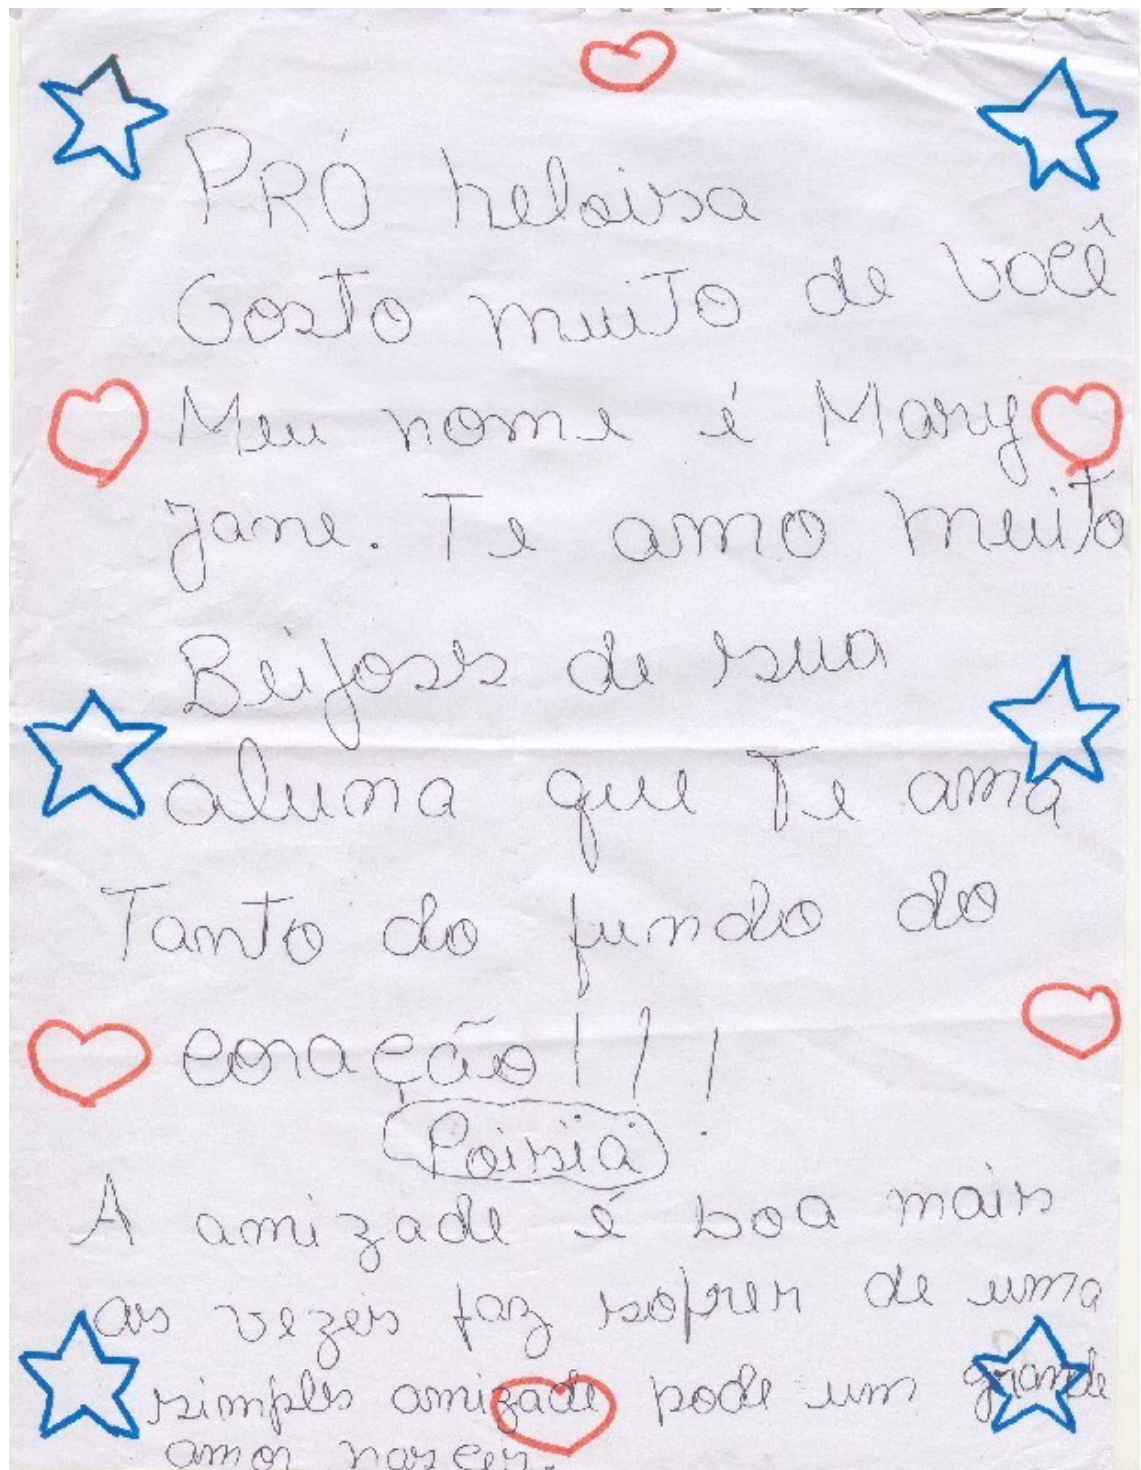 PRÓ heloisa
Gosto muito de você
Meu nome é Mary
jane. Te amo muito
Beijoss de sua
aluna que Te ama
Tanto do fundo do
coração!!!
Poisia
A amizade é boa mais
as vezes faz sofrer de uma
simples amizade pode um grande
amor nascer.